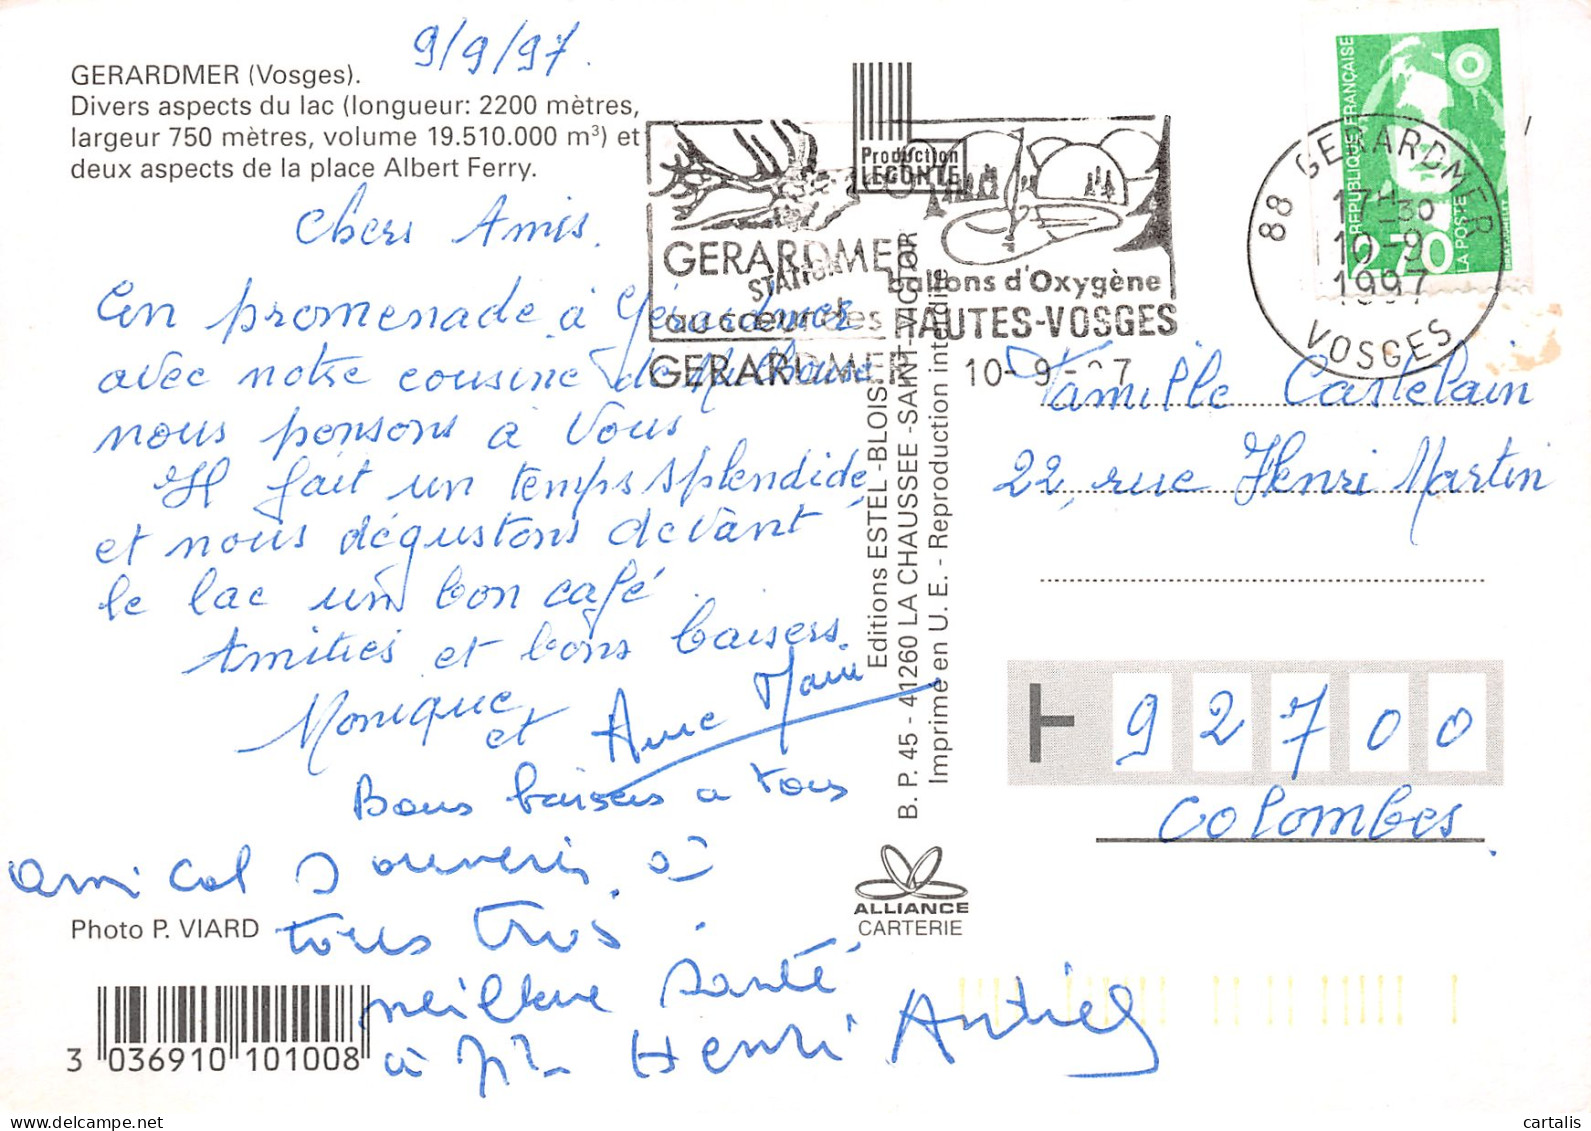 9/9/97.
GERARDMER (Vosges).
Divers aspects du lac (longueur: 2200 mètres,
largeur 750 mètres, volume 19.510.000 m³) et
deux aspects de la place Albert Ferry.
Chers Amis.
En promenade à Gérardmer
avec notre cousine de Mulhouse
nous pensons à Vous
Il fait un temps splendide
et nous dégustons devant
le lac un bon café.
Amitiés et bons baisers.
Monique et Anne Marie
Bons baisers a tous
amical souvenir à
tous trois.
meilleure santé
à Mr Henri
Photo P. VIARD
3 036910 101008
Production
LECONTE
GERARDMER
STATION
ballons d'Oxygène
au cœur des HAUTES-VOSGES
GERARDMER 10-9-97
Editions ESTEL-BLOIS
B. P. 45 - 41260 LA CHAUSSEE-SAINT-VICTOR
Imprimé en U. E. - Reproduction interdite
ALLIANCE
CARTERIE
REPUBLIQUE FRANÇAISE
2,70
LA POSTE
88 GERARDMER
17H30
10-9
1997
VOSGES
Famille Castelain
22, rue Henri Martin
92700
Colombes.
cartalis
delcampe.net